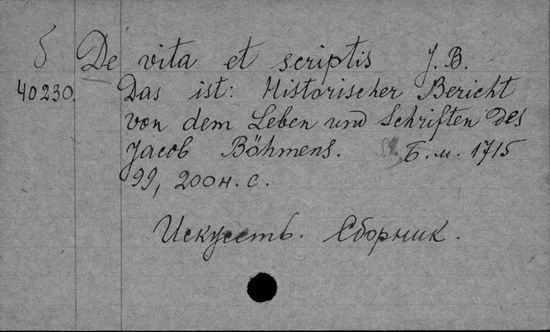 б De vita et scriptis J. B.
40230. Das ist: Historischer Bericht
von dem Leben und Schriften des
Jacob Böhmens. Б. м. 1715
99, 200 н. с.
Искусств. Сборник.